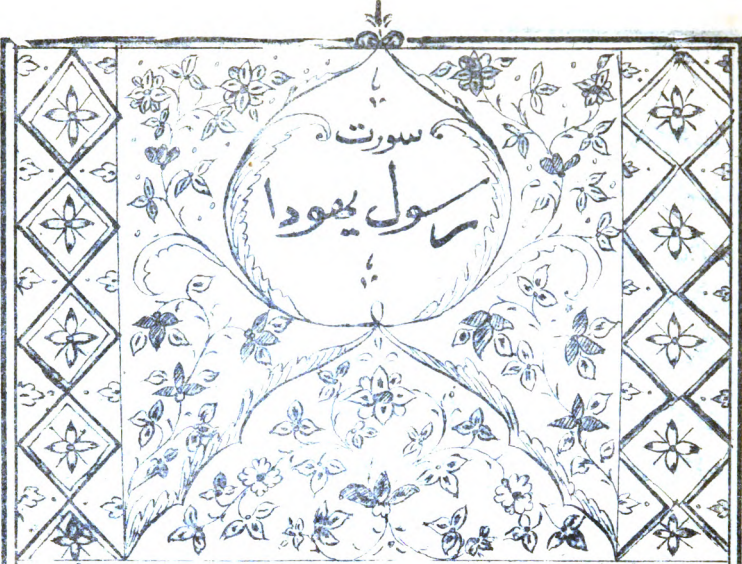 سورت
رسول يهودا